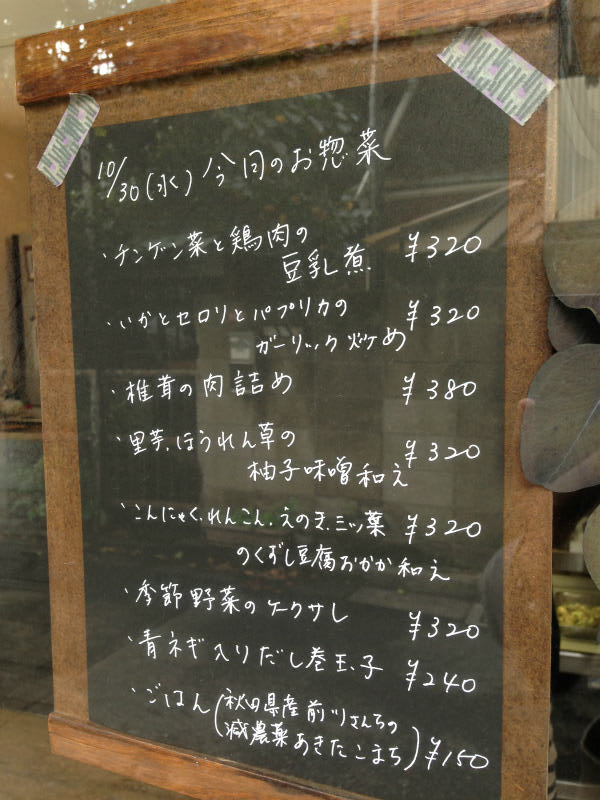 10/30(水) 今日のお惣菜
・チンゲン菜と鶏肉の ¥320
豆乳煮
・いかとセロリとパプリカの ¥320
ガーリック炒め
・椎茸の肉詰め ¥380
・里芋、ほうれん草の ¥320
柚子味噌和え
・こんにゃく、れんこん、えのき、三ッ葉 ¥320
のくずし豆腐おかか和え
・季節野菜のケークサレ ¥320
・青ネギ入りだし巻玉子 ¥240
・ごはん(秋田県産前川さんちの
減農薬あきたこまち) ¥150